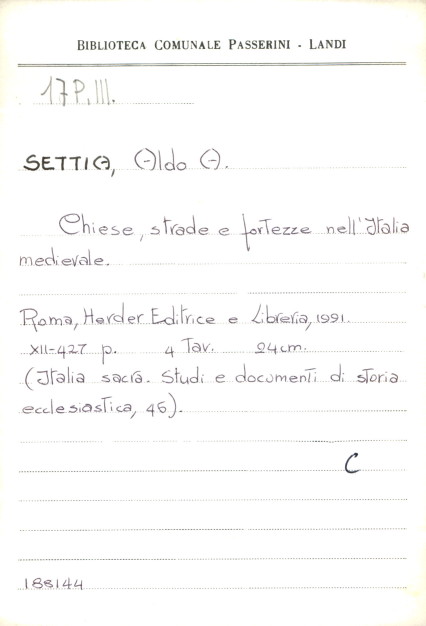 BIBLIOTECA COMUNALE PASSERINI - LANDI
17 P. III.
SETTIA, Aldo A.
Chiese, strade e fortezze nell'Italia
medievale.
Roma, Herder Editrice e Libreria, 1991.
XII-427 p. 4 Tav. 24cm.
(Italia sacra. Studi e documenti di storia
ecclesiastica, 46).
C
188144